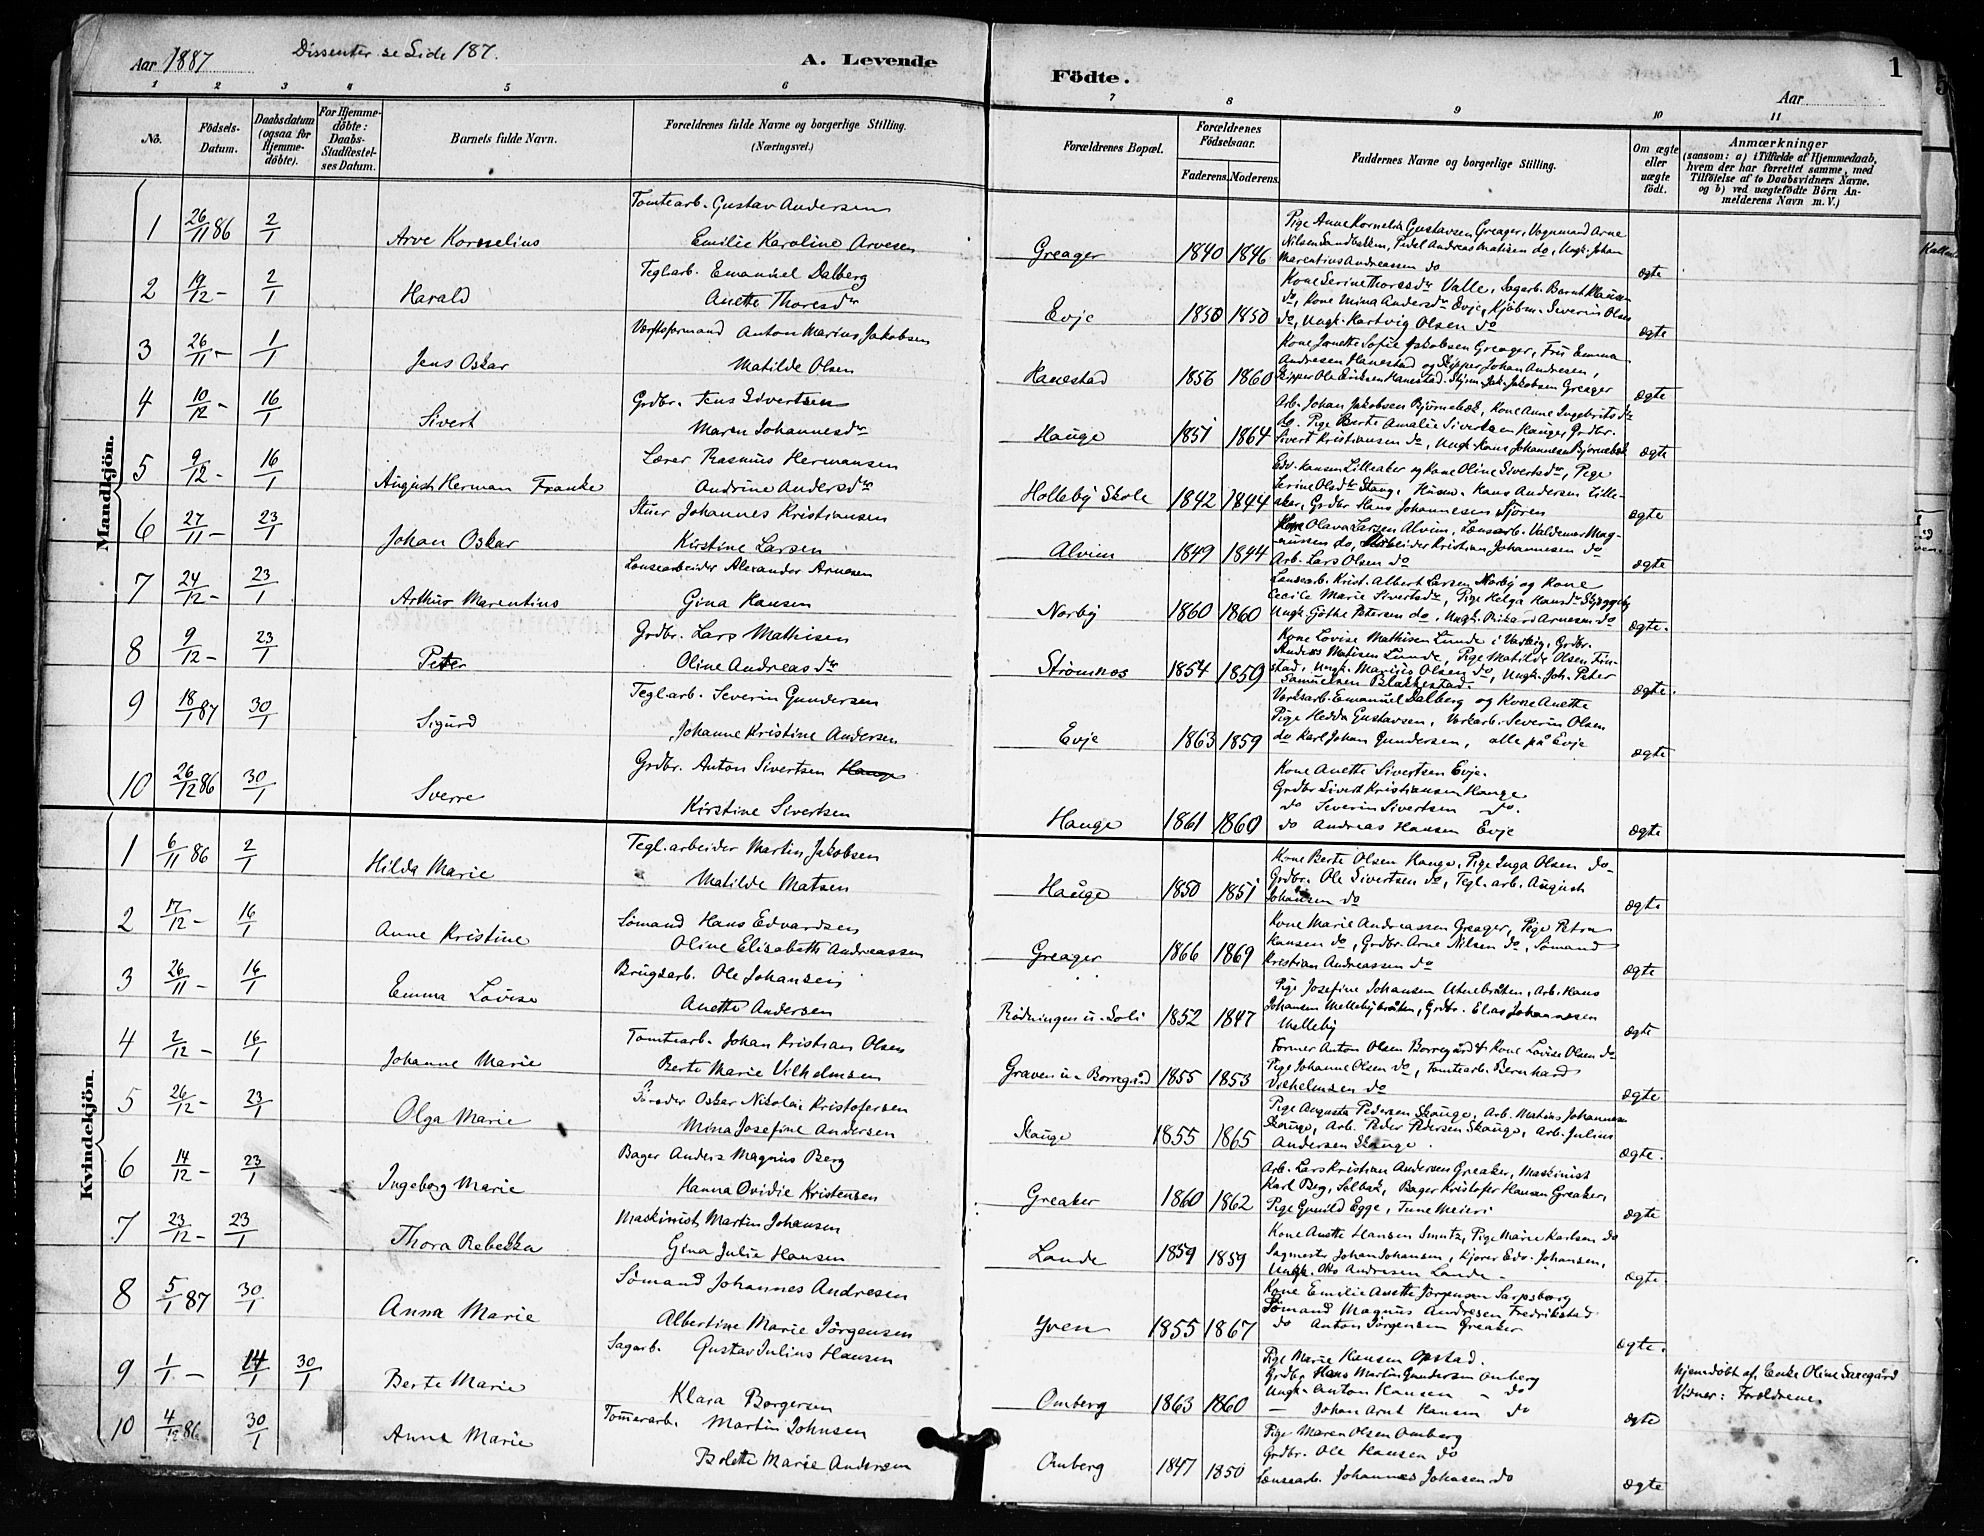 Aar 1887 Dissenter se Side 187. A. Levende Födte. Aar 1
1 2 3 4 5 6 7 8 9 10 11
No. Födsels-Datum. Daabsdatum (ogsaa for Hjemme-döbte). For Hjemme-döbte: Daabs-Stadfæstel-ses Datum. Barnets fulde Navn. Forældrenes fulde Navne og borgerlige Stilling. (Næringsvei.) Forældrenes Bopæl. Forældrenes Födselsaar. Faderens. Moderens. Faddernes Navne og borgerlige Stilling. Om ægte eller uægte födt. Anmærkninger (saasom: a) i Tilfælde af Hjemmedaab, hvem der har forrettet samme, med Tilföielse af to Daabsvidners Navne, og b) ved uægtefödte Börn Anmelderens Navn m. V.)
Mandkjön.
1 26/11 86 2/1 Arve Kornelius Tomtearb. Gustav Andersen
Emilie Karoline Arvesen Greager 1840 1846 ægte
Pige Anne Kornelia Gustavsen Greager, Vognmand Arne
Nilsen Sandbakken, Pedel Andreas Matisen do, Ungk. Johan
Marentius Andreassen do
2 19/12 - 2/1 Harald Teglarb. Emanuel Dalberg
Anette Thoresdr Evje 1850 1850 ægte
Kone Serine Thoresdr Valle, Sagarb. Bernt Klausen
do, Kone Mina Andersdr Evje, Kjöbm. Severin Olsen
do, Ungk. Hartvig Olsen do
3 26/11 - 1/1 Jens Oskar Værftsformand Anton Marius Jakobsen
Matilde Olsen Hanestad 1856 1860 ægte
Kone Janette Sofie Jakobsen Greager, Fru Emma
Andresen Hanestad og Skipper Johan Andresen,
Skipper Ole Eriksen Hanestad. Jakobsen Greager
4 10/12 - 16/1 Sivert Grdbr. Jens Sivertsen
Maren Johannesdr Hauge 1851 1864 ægte
Arb. Johan Jakobsen Bjørnebæk, Kone Anne Ingebrigtsdr
do. Pige Berte Amalie Sivertsen Hauge, Grdbr.
Sivert Kristiansen do, Ungk. Hans Johannesen Bjørnebæk
5 9/12 - 16/1 August Herman Franke Lærer Rasmus Hermansen
Andrine Andersdr Holleby Skole 1842 1844 ægte
Edv. Hansen Lilleaker og Kone Oline Sivertsdr, Pige
Serine Olsdr Stang, Husm. Hans Andersen Lille-
aker, Grdbr Hans Johannesen
6 27/11 - 23/1 Johan Oskar Stuer Johannes Kristiansen
Kirstine Larsen Alvim 1849 1844 ægte
Kone Olava Larsen Alvim, Lænsarb. Valdemar Mag-
nussen do, Arbeider Kristian Johannesen do
Arb. Lars Olsen do
7 24/12 - 23/1 Arthur Marentius Lænsearbeider Alexander Arnesen
Gina Hansen Norby 1860 1860 ægte.
Lænsearb. Krist. Albert Larsen Norby og Kone
Cecile Marie Sivertsdr, Pige Helga Hansdr
Ungk. Göthe Petersen do, Ungk. Rikard Arnesen do
8 9/12 - 23/1 Peter Grdbr. Lars Mathisen
Oline Andreasdr Strömnes 1854 1859 ægte.
Kone Lovise Mathisen Lunde i Varteig, Grdbr.
Andreas Matisen Lunde, Pige Matilde Olsen Fin-
stad, Ungk. Marius Olsen do, Ungk. Joh. Peter
Samuelsen Blakkestad.
9 18/1 87 30/1 Sigurd Teglarb. Severin Gundersen
Johanne Kristine Andersen Evje 1863 1859 ægte
Værksarb. Emanuel Dalberg og Kone Anette
Pige Hedda Gustavsen, Værkarb. Severin Olsen
do Karl Johan Gundersen, alle på Evje
10 26/12 86 30/1 Sverre Grdbr. Anton Sivertsen Hauge
Kirstine Sivertsen Hauge 1861 1860 ægte
Kone Anette Sivertsen Evje.
Grdbr Sivert Kristiansen Hauge
do Severin Sivertsen do.
do Andreas Hansen Evje
Kvindekjön.
1 6/11 86 2/1 Hilda Marie Tegl.arbeider Martin Jakobsen
Matilde Matsen Hauge 1850 1851 ægte
Kone Berte Olsen Hauge, Pige Inga Olsen do
Grdbr. Ole Sivertsen do, Tegl.arb. August
Johansen do
2 7/12 - 16/1 Anne Kristine Sömand Hans Edvardsen
Oline Elisabeth Andreassen Greager 1866 1869 ægte
Kone Marie Andreassen Greager, Pige Petra
Hansen do, Grdbr. Arne Nilsen do, Sömand
Kristian Andreassen do
3 26/11 - 16/1 Emma Lovise Brugsarb. Ole Johansen
Anette Andersen Rödningen u. Soli 1852 1847 ægte
Pige Josefine Johansen Utnebråten, Arb. Hans
Johansen Mellebybråten, Grdbr. Elias Johannesen
Melleby
4 2/12 - 16/1 Johanne Marie Tomtearb. Johan Kristian Olsen
Berte Marie Vilhelmsen Graven u. Borregård 1855 1853 ægte
Former Anton Olsen Borregård & Kone Lovise Olsen do
Pige Johanne Olsen do, Tomtearb. Bernhard
Vilhelmsen do
5 26/12 - 23/1 Olga Marie Oskar Nikolai Kristofersen
Mina Josefine Andersen Skauge 1855 1865 ægte.
Pige Augusta Pedersen Skauge, Arb. Matias Johannesen
Skauge, Arb. Peder Pedersen Skauge, Arb. Julius
Andersen Skauge.
6 14/12 - 23/1 Ingeborg Marie Bager Anders Magnus Berg
Hanna Ovidie Kristensen Greaker 1860 1862 ægte
Arb. Lars Kristian Andersen Greaker, Maskinist
Karl Berg, Solbak, Bager Kristofer Hansen Greaker,
Pige Gunild Egge, Tune Meieri
7 23/12 - 23/1 Thora Rebekka Maskinist Martin Johansen
Gina Julie Hansen Lande 1859 1859 ægte
Kone Anette Hansen Smutz, Pige Marie Karlsen do
Sagmester Johan Johansen, Kjörer Edv. Johansen,
Ungk. Otto Andresen Lande.
8 5/1 87 30/1 Anna Marie Sömand Johannes Andresen
Albertine Marie Jörgensen Yven 1855 1867 ægte.
Kone Emilie Anette Jörgensen Sarpsborg
Sömand Magnus Andresen Fredrikstad
do Anton Jörgensen Greaker
9 1/1 - 14/1 30/1 Berte Marie Sagarb. Gustav Julius Hansen
Klara Børgersen Omberg 1863 1860 ægte
Pige Marie Hansen Opstad.
Grdbr. Hans Martin Gundersen Omberg
Ungk. Anton Hansen - do
- Johan Arnt Hansen do
hjemdöbt af Enke Oline Saxegård
Vidner: Forældrene
10 4/12 86 30/1 Anna Marie Tömmerarb. Martin Johnsen
Bolette Marie Andersen Omberg 1847 1850 ægte
Pige Maren Olsen Omberg
Grdbr. Ole Hansen do
Lænsearb. Johannes Johnsen do